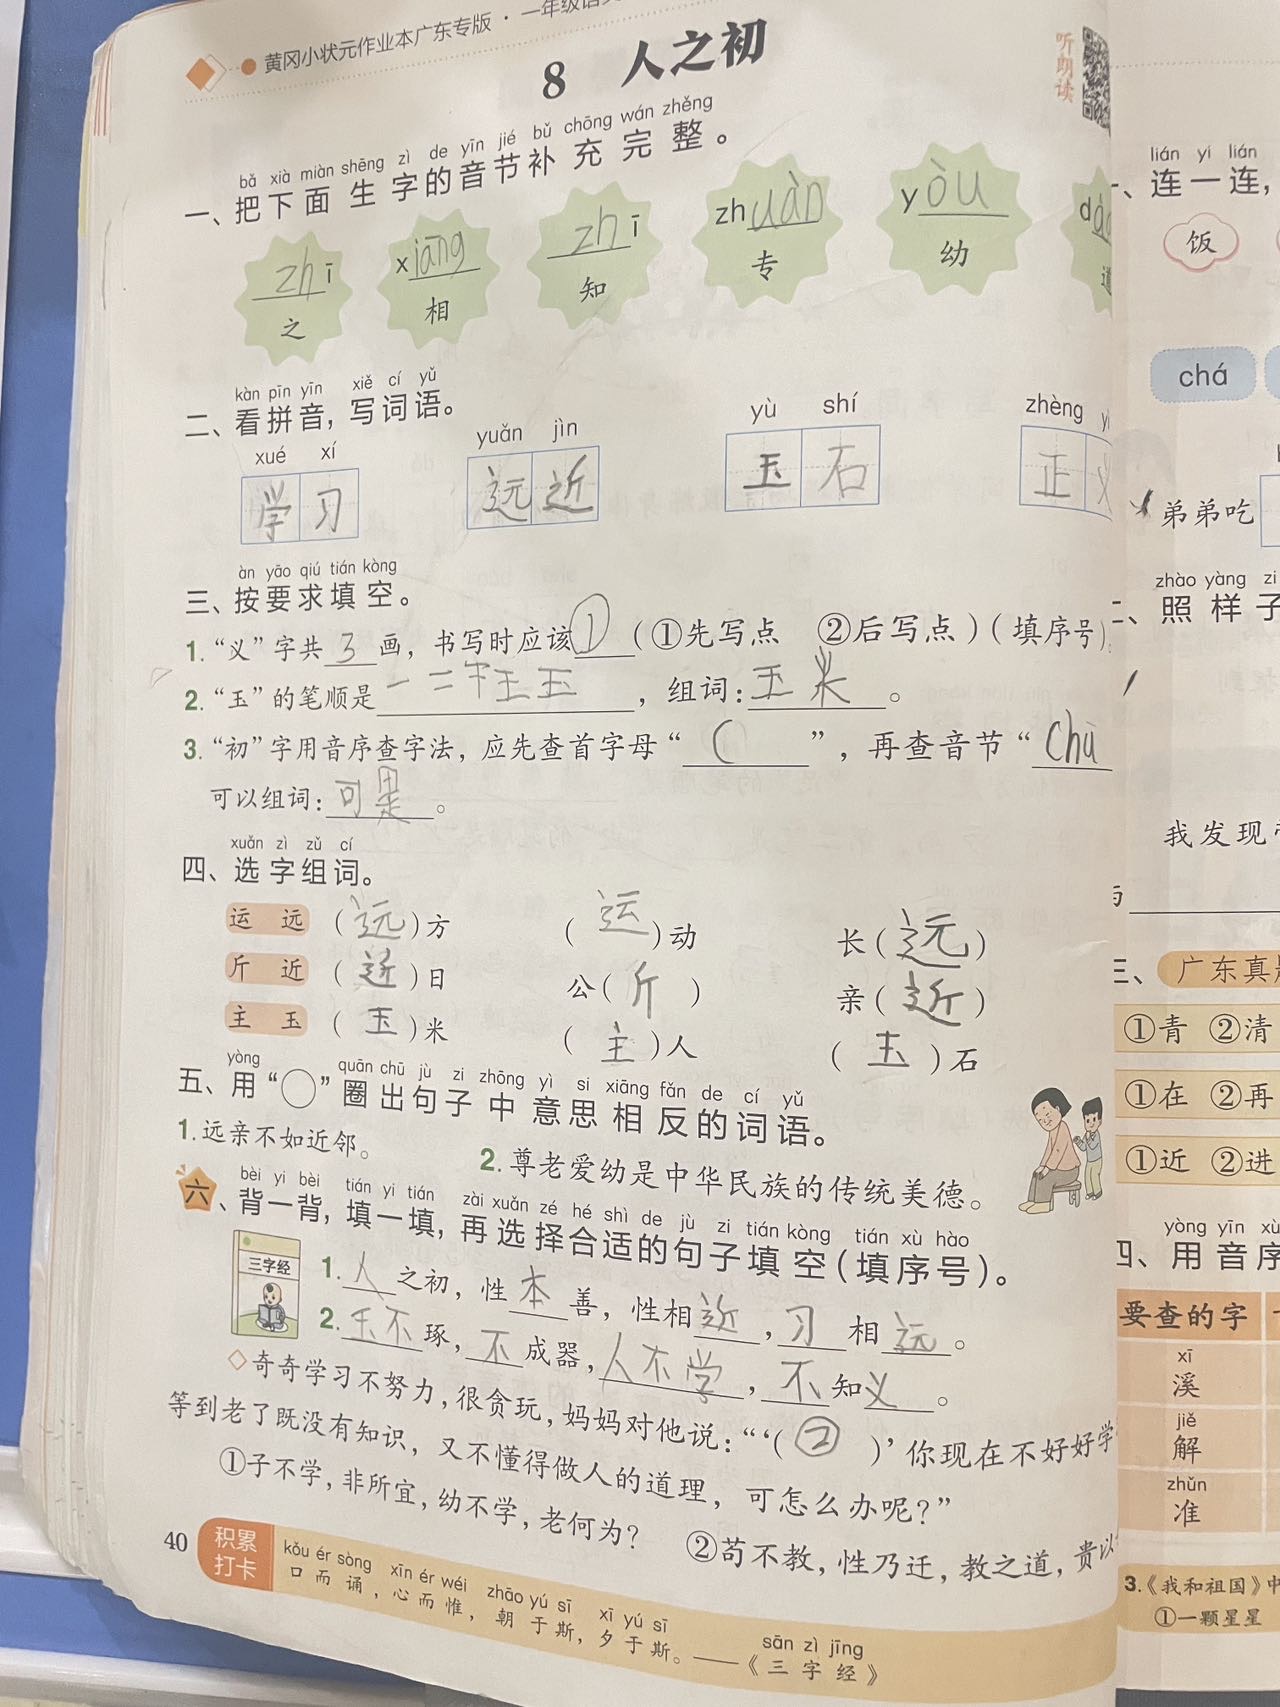 黄冈小状元作业本广东专版·一年级语文
8 人之初
听朗读
bǎ xià miàn shēng zì de yīn jié bǔ chōng wán zhěng
一、把下面生字的音节补充完整。
zhī xiāng zhī zhuàn yòu
之 相 知 专 幼
kàn pīn yīn xiě cí yǔ
二、看拼音，写词语。
xué xí yuǎn jìn yù shí zhèng
学习 远近 玉石 正
àn yāo qiú tián kòng
三、按要求填空。
1.“义”字共3画，书写时应该①(①先写点 ②后写点)(填序号)。
2.“玉”的笔顺是一二干王玉，组词:玉米。
3.“初”字用音序查字法，应先查首字母“C”，再查音节“chū
可以组词:
xuǎn zì zǔ cí
四、选字组词。
运 远 (远)方 (运)动 长(远)
斤 近 (近)日 公(斤) 亲(近)
主 玉 (玉)米 (主)人 (玉)石
yòng quān chū jù zi zhōng yì si xiāng fǎn de cí yǔ
五、用“○”圈出句子中意思相反的词语。
1.远亲不如近邻。 2.尊老爱幼是中华民族的传统美德。
bèi yi bèi tián yi tián zài xuǎn zé hé shì de jù zi tián kòng tián xù hào
六、背一背，填一填，再选择合适的句子填空(填序号)。
三字经
1.人之初，性本善，性相近，习相远。
2.玉不琢，不成器，人不学，不知义。
◇奇奇学习不努力，很贪玩，妈妈对他说：“‘(②)’你现在不好好学
等到老了既没有知识，又不懂得做人的道理，可怎么办呢？”
①子不学，非所宜，幼不学，老何为？ ②苟不教，性乃迁，教之道，贵以
40 积累打卡
kǒu ér sòng xīn ér wéi zhāo yú sī xī yú sī
口而诵，心而惟，朝于斯，夕于斯。——《三字经》
sān zì jīng
lián yi lián
连一连，
饭
chá
弟弟吃
zhào yàng zi
二、照样子
我发现
三、广东真
①青 ②清
①在 ②再
①近 ②进
yòng yīn xù
四、用音序
要查的字
xī
溪
jiě
解
zhǔn
准
3.《我和祖国》中
①一颗星星